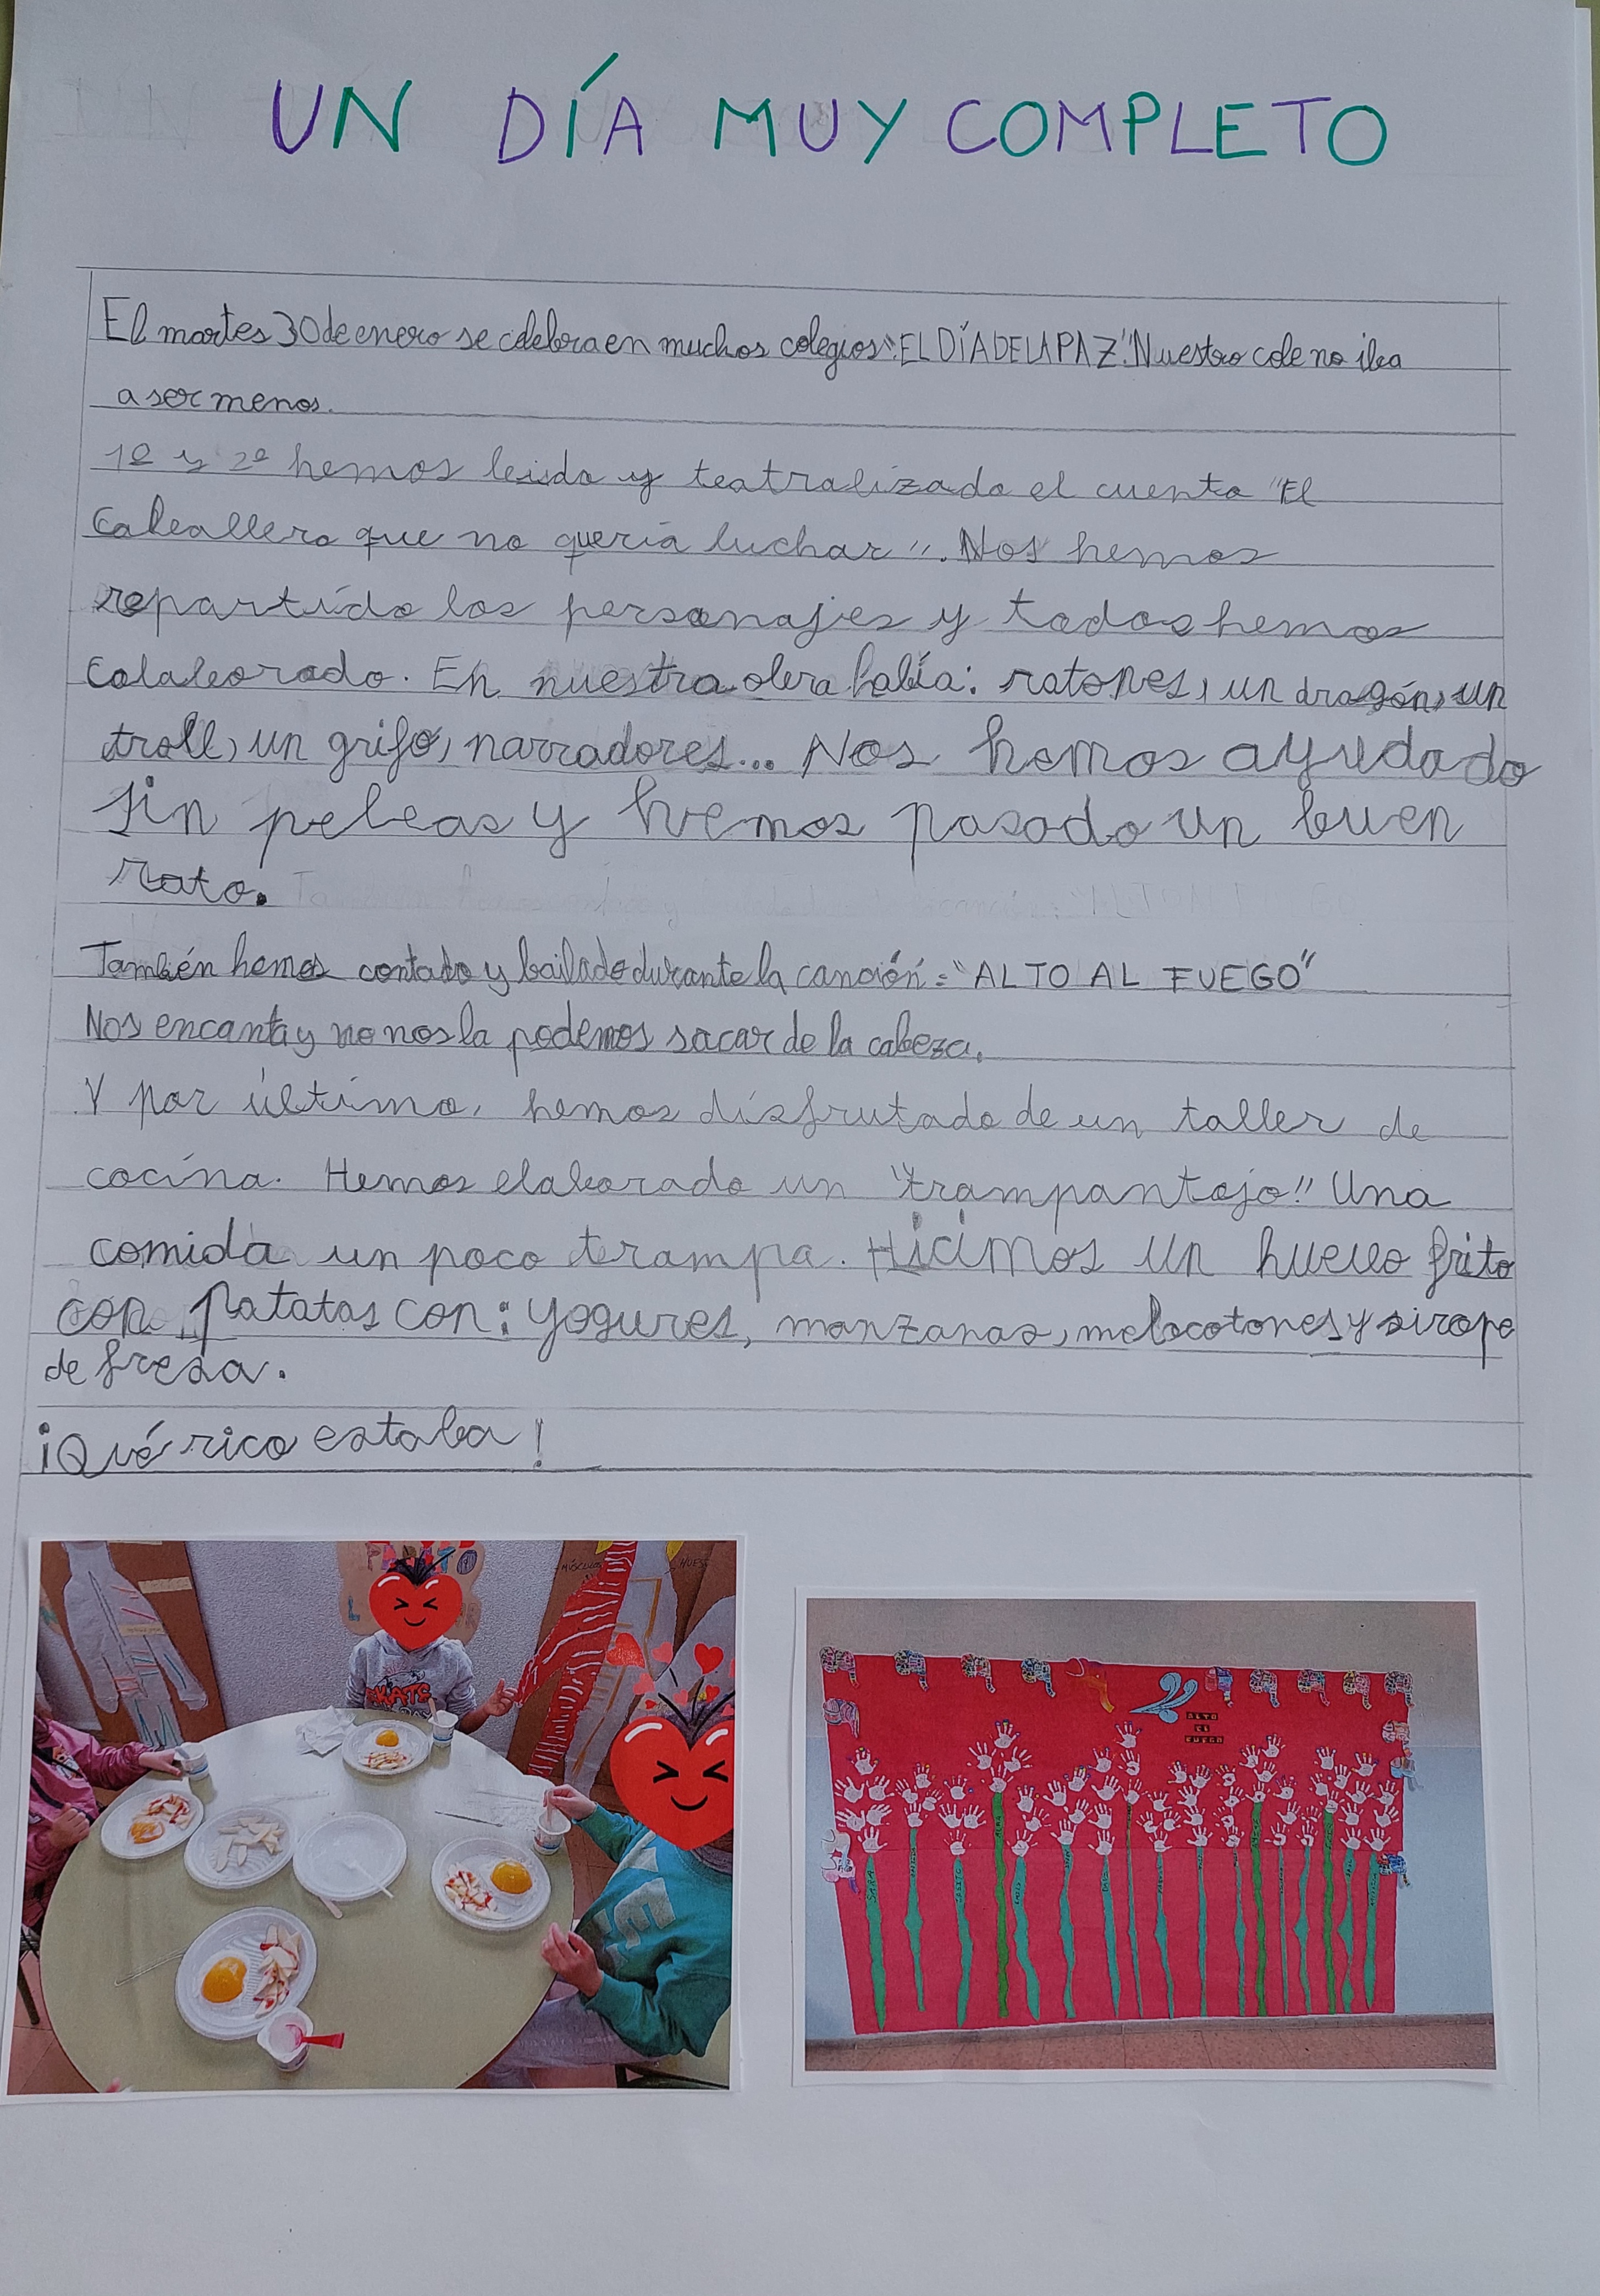 UN DÍA MUY COMPLETO
El martes 30 de enero se celebra en muchos colegios "EL DÍA DE LA PAZ". Nuestro cole no iba
a ser menos.
1º y 2º hemos leido y teatralizado el cuento "El
Caballero que no quería luchar". Nos hemos
repartido los personajes y todos hemos
colaborado. En nuestra obra había: ratones, un dragón, un
troll, un grifo, narradores... Nos hemos ayudado
sin peleas y hemos pasado un buen
rato.
También hemos contado y bailado durante la canción: "ALTO AL FUEGO"
Nos encanta y no nos la podemos sacar de la cabeza.
Y por último, hemos disfrutado de un taller de
cocina. Hemos elaborado un "trampantojo!! Una
comida un poco trampa. Hicimos un huevo frito
con patatas con: yogures, manzanas, melocotones y sirope
de fresa.
¡Qué rico estaba!
MÚSCULOS
HUES
SKATE
ALTO
EL
FUEGO
SARA